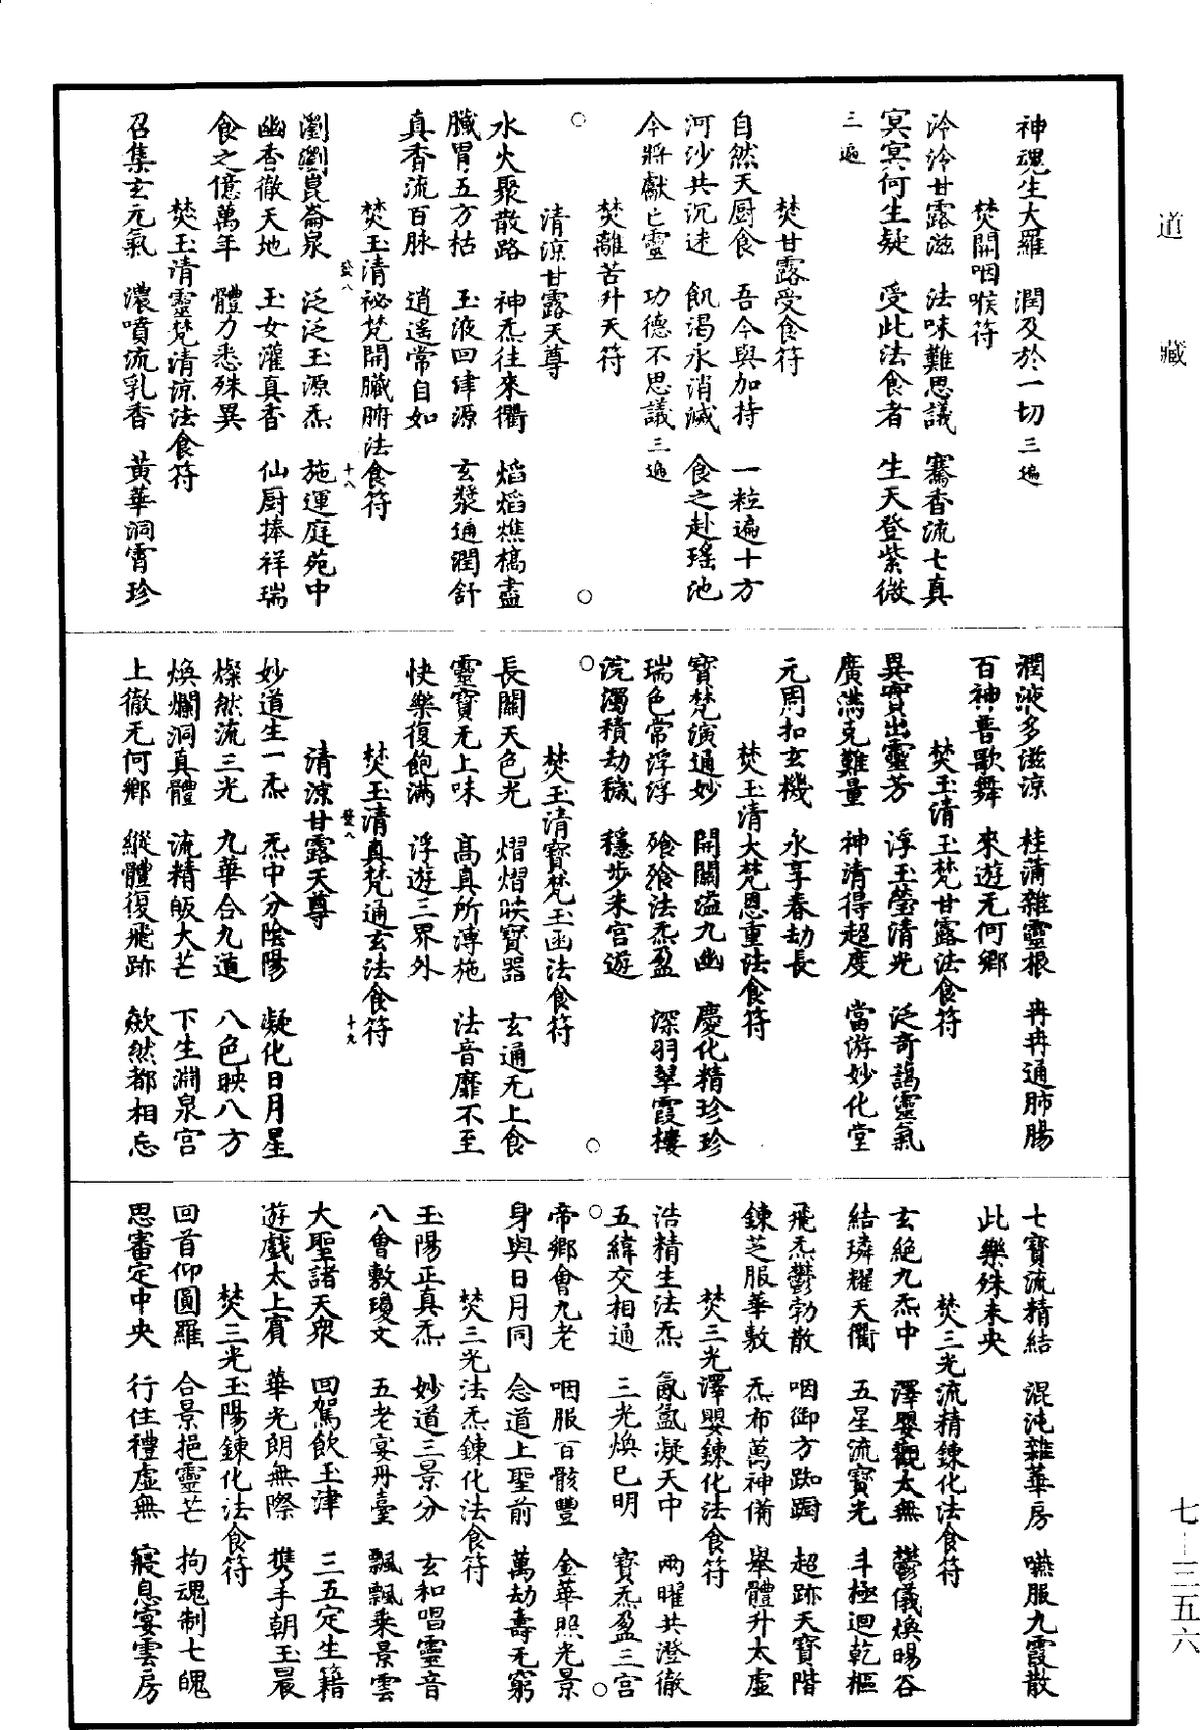 道藏
神魂生大羅　潤及於一切三遍
焚開咽喉符
泠泠甘露滋　法味難思議　騫香流七真
冥冥何生疑　受此法食者　生天登紫微
三遍
焚甘露受食符
自然天厨食　吾今與加持　一粒遍十方
河沙共沉迷　飢渴永消滅　食之赴瑤池
今將獻亡靈　功德不思議三遍
焚離苦升天符
清涼甘露天尊
○　○
水火聚散路　神炁往來衢　焰焰燋槁盡
臟胃五方枯　玉液回津源　玄漿通潤舒
真香流百脉　逍遙常自如
焚玉清祕梵開臟腑法食符
瀏瀏崑崙泉　泛泛玉源炁　施運庭苑中
發八　十八
幽香徹天地　玉女灌真香　仙厨捧祥瑞
食之億萬年　體力悉殊異
焚玉清靈梵清涼法食符
召集玄元氣　濃噴流乳香　黃華洞霄珍
潤液多滋涼　桂蒲雜靈根　冉冉通肺腸
百神普歌舞　來遊无何鄉
焚玉清玉梵甘露法食符
異寶出靈芳　浮玉瑩清光　泛奇謁靈氣
廣濟克難量　神清得超度　當游妙化堂
元周扣玄機　永享春劫長
焚玉清大梵恩重法食符
寶梵演通妙　開關溢九幽　慶化精珍珍
瑞色常浮浮　飱飱法炁盈　深羽翠霞樓
浣濁積劫穢　穩步未宮遊
○　○
焚玉清寶梵玉函法食符
長關天色光　熠熠暎寶器　玄通无上食
靈寶无上味　高真所溥施　法音靡不至
快樂復飽滿　浮遊三界外
焚玉清真梵通玄法食符
發八　十九
清涼甘露天尊
妙道生一炁　炁中分陰陽　凝化日月星
燦然流三光　九華合九道　八色映八方
煥爛洞真體　流精皈大芒　下生淵泉宮
上徹无何鄉　縱體復飛跡　欻然都相忘
七寶流精結　混沌雜華房　嚥服九霞散
此樂殊未央
焚三光流精鍊化法食符
玄絕九炁中　澤嬰觀太無　鬱儀煥暘谷
結璘耀天衢　五星流寶光　斗極迴乾樞
飛炁鬱勃散　咽御方踟躕　超跡天寶階
鍊芝服華敷　炁布萬神備　舉體升太虛
焚三光澤嬰鍊化法食符
浩精生法炁　氤氳凝天中　兩曜共澄徹
五緯交相通　三光煥已明　寶炁盈三宮
○　○
帝鄉會九老　咽服百骸豐　金華照光景
身與日月同　念道上聖前　萬劫壽无窮
焚三光法炁鍊化法食符
玉陽正真炁　妙道三景分　玄和唱靈音
八會敷瓊文　五老宴丹臺　飄飄乘景雲
大聖諸天衆　回駕飲玉津　三五定生籍
遊戲太上賓　華光朗無際　携手朝玉晨
焚三光玉陽鍊化法食符
回首仰圓羅　合景挹靈芒　拘魂制七魄
思審定中央　行住禮虛無　寢息宴雲房
七—三五六